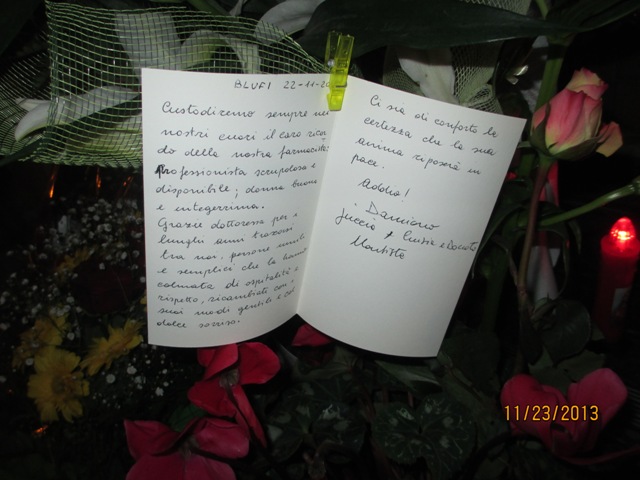 BLUFI 22-11-20
Custodiremo sempre nei
nostri cuori il caro ricor
do della nostra farmacista:
Professionista scrupolosa e
disponibile; donna buona
e integerrima.
Grazie dottoressa per i
lunghi anni trascorsi
tra noi, persone umili
e semplici che la hanno
colmata di ospitalità e
rispetto, ricambiati con i
suoi modi gentili e col
dolce sorriso.
Ci sia di conforto la
certezza che la sua
anima riposerà in
pace.
Addio!
Damiano
e Donato
11/23/2013